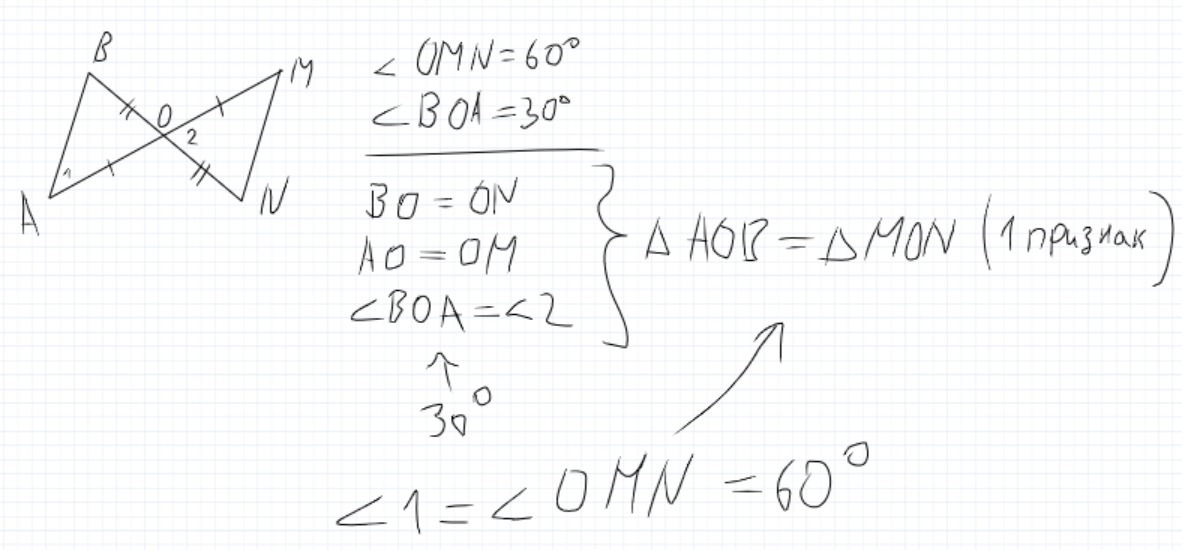 B
M
O
2
1
A
N
∠ OMN=60°
∠BOA=30°
BO=ON
AO=OM
∠BOA=∠2
ΔAOB=ΔMON (1 признак)
↑
30°
∠1=∠OMN=60°